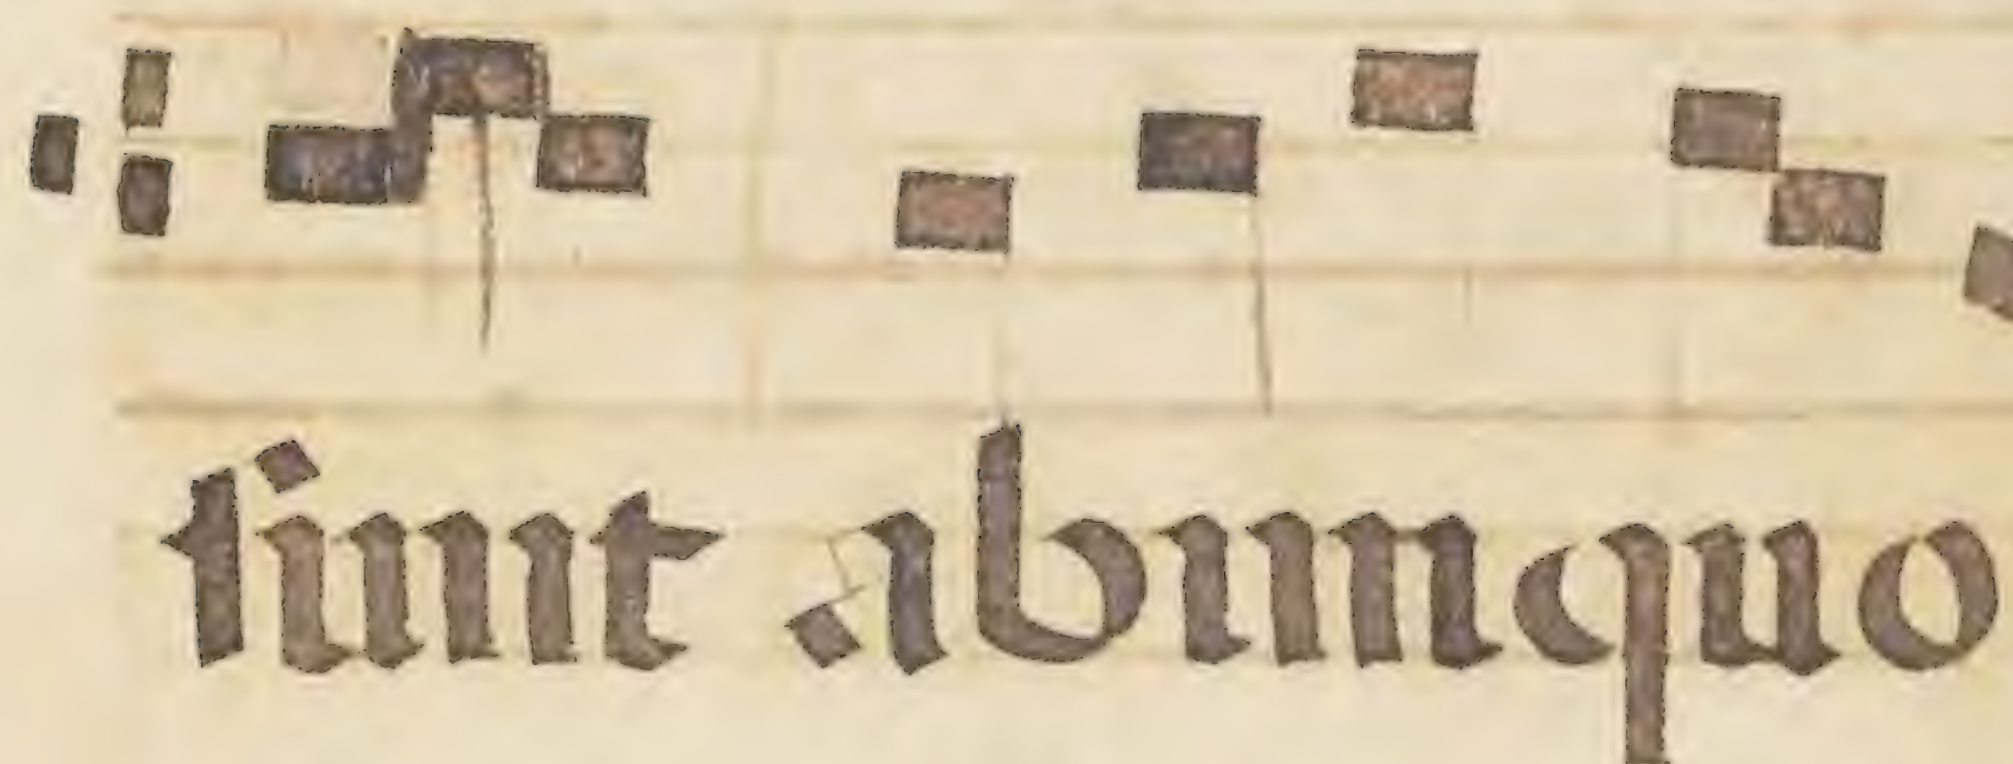 sunt abiniquo